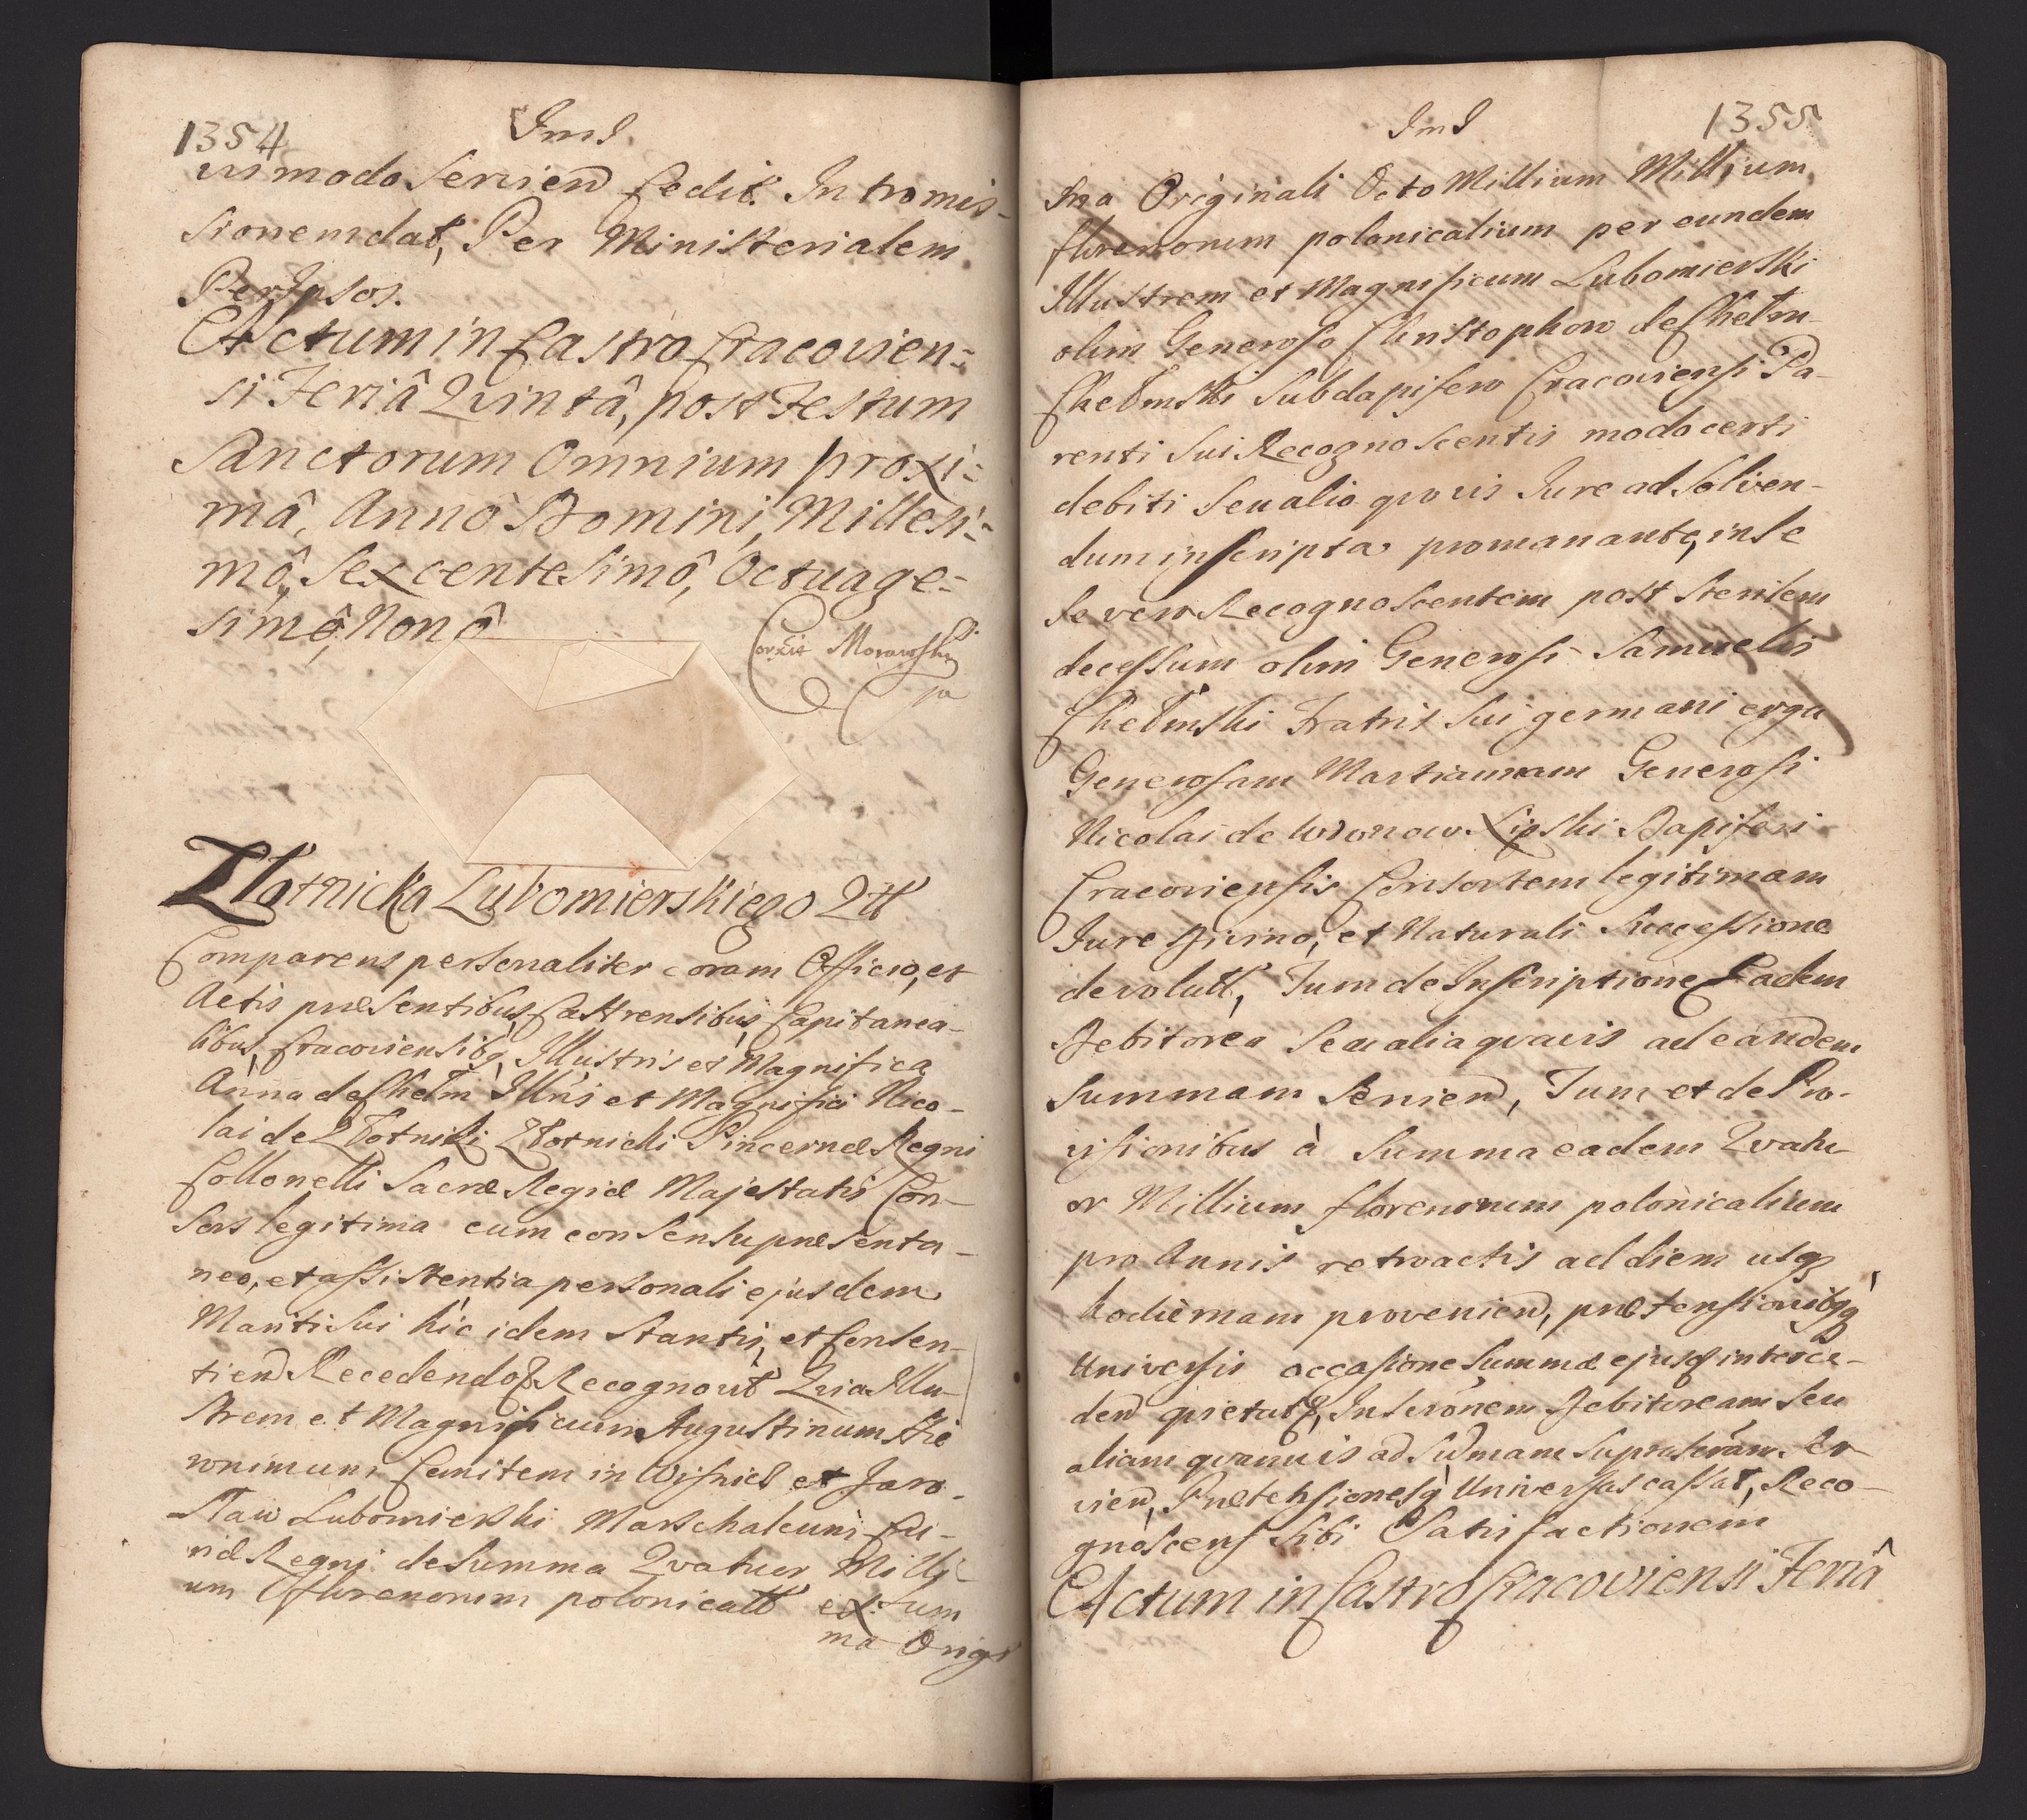 1354
Ind.
uis modo Servien Cedit. Intromis-
sionem dat, Per Ministerialem
Per Ipsos.
Actum in Castro Cracovien=
si Feriâ Qvintâ, post Festum
Sanctorum Omnium proxi=
mâ, Annô Domini, Millesi=
mô, Sexcentesimô, Octuage=
simô, Nonô
Corxit Morawski
Złotnicka Lubomierskiego Qtt
Comparens personaliter coram Officio, et
Actis præsentibus, Castrensibus, Capitanea-
libus, Cracoviensibq, Illustris et Magnifica
Anna de Chełm Illris et Magnifici Nico-
lai de Złotniki Złotnicki Pincernæ Regni
Collonelli Sacræ Regiæ Majestatis Con-
sors legitima cum consensu præsenta-
neo, et assistentia personali ejusdem
Mariti sui hic idem stantis, et Consen-
tien Recedendoq Recognovit Qvia Illu-
strem et Magnificum Augustinum Hie
ronimum Comitem in Wisnicz et Jaro-
sław Lubomierski Marschalcum Cu-
riæ Regni de Summa Qvatuor Milli-
um florenorum polonicall ex Sum
ma Origi
Ind
1355
Ina Originali Octo Millium Millium
florenorum polonicalium per eundem
Illustrem et Magnificum Lubomierski
olim Generoso Christophoro de Chełm
Chełmski Subdapifero Cracoviensi Pa-
renti sui Recognoscentis modo certi
debiti Seu alio qvovis Iure ad Solven-
dum inscripta promanante, in se
se vero Recognoscentem post sterilem
decessum olim Generosi Samuelis
Chełmski Fratris sui germani erga
Generosam Martiannam Generosi
Nicolai de Wronow Lipski Dapiferi
Cracoviensis Consortem legitimam
Iure Divino, et Naturali Successione
devolutt, Tum de Inscriptione Eadem
Debitorea Seu alia qvavis ad eandem
Summam Servien, Tum et de Pro-
visionibus à Summa eadem Qvatu-
or Millium florenorum polonicalium
pro Annis retroactis ad diem usq
hodiernam provenien, prætensionibqq
Universis occasione Summæ ejusd interce-
den qvietatq, Inscrōnem Debitoream seu
aliam qvamvis ad Sum̄am suprascrām ser-
vien, Prætensionesq Universas cassat, Reco-
gnoscens sibi Satisfactionem
Actum in Castro Cracoviensi Feriâ